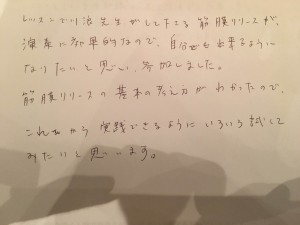 レッスンで川浪先生がしてくださる 筋膜リリースが、
演奏に効果的なので、自分でも出来るように
なりたいと思い、参加しました。
筋膜リリースの 基本の考え方が わかったので、
これから 実践できるように いろいろ 試して
みたいと思います。